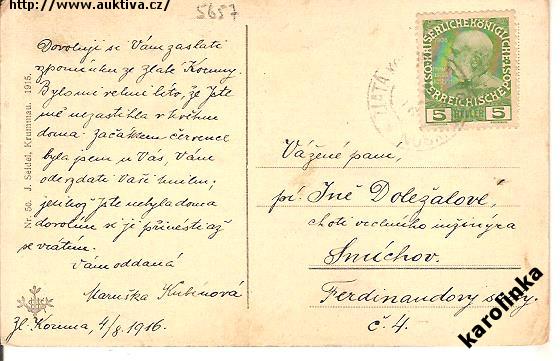 http://www.auktiva.cz/
5657
Dovoluji si Vám zaslati
vzpomínku ze Zlaté Koruny.
Bylo mi velmi líto, že jste
mě nezastihla v květnu
doma začátkem července
byla jsem u Vás, Vám
odevzdati Vaši knihu;
jelikož jste nebyla doma
dovolím si ji přinésti až
se vrátím.
Vám oddaná
Maruška Kubínová
Zl. Koruna, 4/8 1916.
Nr. 56. J. Seidel, Krummau. 1915.
KAISERLICHE KÖNIGLICHE
ÖSTERREICHISCHE POST
5 HELLER 5
ZLATÁ
Vážené paní,
pí. Ině Doležalové,
choti vrchního inžinýra
Smíchov.
Ferdinandovy sady
č. 4.
karolinka